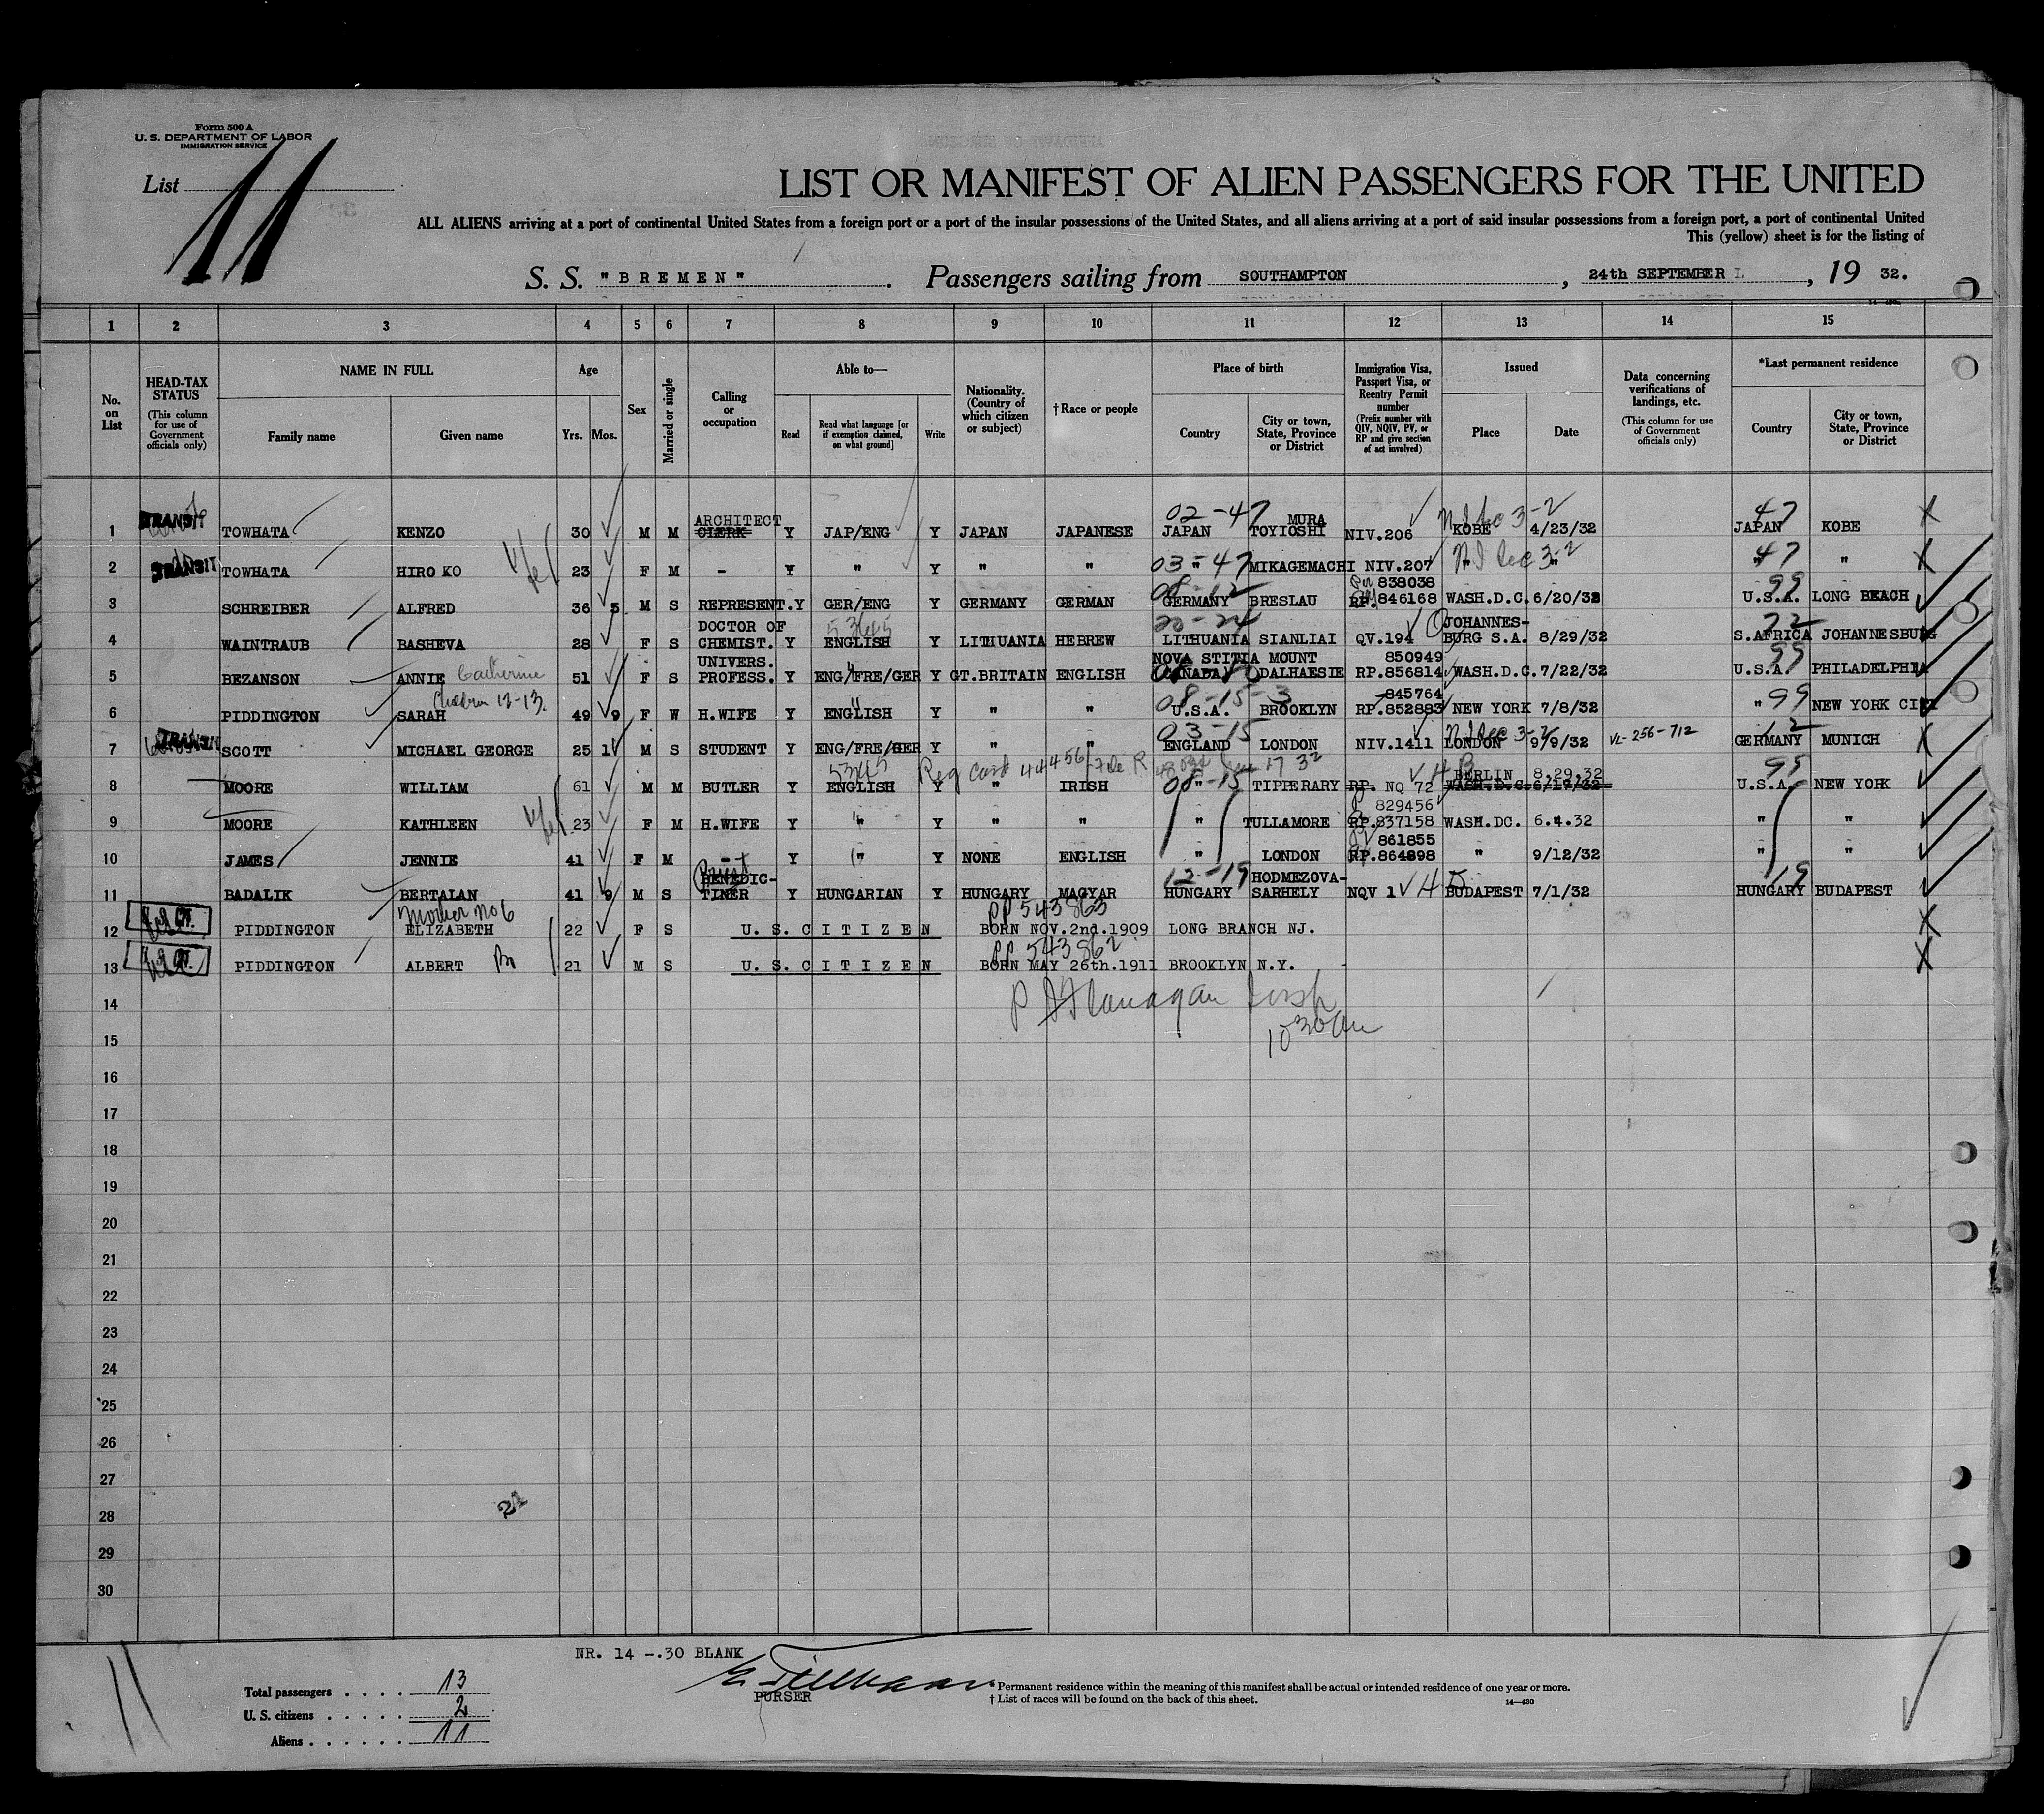 Form 500 A
U. S. DEPARTMENT OF LABOR
IMMIGRATION SERVICE
List 11
LIST OR MANIFEST OF ALIEN PASSENGERS FOR THE UNITED
ALL ALIENS arriving at a port of continental United States from a foreign port or a port of the insular possessions of the United States, and all aliens arriving at a port of said insular possessions from a foreign port, a port of continental United
This (yellow) sheet is for the listing of
S. S. "BREMEN". Passengers sailing from SOUTHAMPTON, 24th SEPTEMBER, 19 32.
14—430a
1 2 3 4 5 6 7 8 9 10 11 12 13 14 15
No. on List
HEAD-TAX STATUS (This column for use of Government officials only)
NAME IN FULL
Family name Given name
Age
Yrs. Mos.
Sex
Married or single
Calling or occupation
Able to—
Read Read what language [or if exemption claimed, on what ground] Write
Nationality. (Country of which citizen or subject)
†Race or people
Place of birth
Country City or town, State, Province or District
Immigration Visa, Passport Visa, or Reentry Permit number (Prefix number with QIV, NQIV, PV, or RP and give section of act involved)
Issued
Place Date
Data concerning verifications of landings, etc. (This column for use of Government officials only)
*Last permanent residence
Country City or town, State, Province or District
02-47 47
ARCHITECT MURA
1 TRANSIT TOWHATA KENZO 30 M M CLERK Y JAP/ENG Y JAPAN JAPANESE JAPAN TOYIOSHI NIV.206 KOBE 4/23/32 JAPAN KOBE
03-47 47
2 TRANSIT TOWHATA HIROKO 23 F M - Y " Y " " " MIKAGEMACHI NIV.207 " " " "
08-12 838038 99
3 SCHREIBER ALFRED 36 5 M S REPRESENT. Y GER/ENG Y GERMANY GERMAN GERMANY BRESLAU RP.846168 WASH.D.C. 6/20/32 U.S.A. LONG BEACH
DOCTOR OF 20-24 JOHANNES- 72
4 WAINTRAUB BASHEVA 28 F S CHEMIST. Y ENGLISH Y LITHUANIA HEBREW LITHUANIA SIANLIAI QV.194 BURG S.A. 8/29/32 S.AFRICA JOHANNESBURG
UNIVERS. NOVA STITIA MOUNT 850949 99
5 BEZANSON ANNIE Catherine 51 F S PROFESS. Y ENG/FRE/GER Y GT.BRITAIN ENGLISH CANADA DALHAESIE RP.856814 WASH.D.C. 7/22/32 U.S.A. PHILADELPHIA
Children 12-13. 08-15-3 845764 99
6 PIDDINGTON SARAH 49 9 F W H.WIFE Y ENGLISH Y " " U.S.A. BROOKLYN RP.852883 NEW YORK 7/8/32 " NEW YORK CITY
03-15 12
7 TRANSIT SCOTT MICHAEL GEORGE 25 1 M S STUDENT Y ENG/FRE/GER Y " " ENGLAND LONDON NIV.1411 LONDON 9/9/32 VL-256-712 GERMANY MUNICH
5345 Reg Card 444456 08-15 BERLIN 8.29.32 99
8 MOORE WILLIAM 61 M M BUTLER Y ENGLISH Y " IRISH " TIPPERARY RP. NQ 72 WASH.D.C. 6/17/32 U.S.A. NEW YORK
829456
9 MOORE KATHLEEN 23 F M H.WIFE Y " Y " " " TULLAMORE RP.837158 WASH.DC. 6.4.32 " "
861855
10 JAMES JENNIE 41 F M - Y " Y NONE ENGLISH " LONDON RP.864898 " 9/12/32 " "
Priest BENEDIC- 12-19 HODMEZOVA- 19
11 BADALIK BERTALAN 41 9 M S TINER Y HUNGARIAN Y HUNGARY MAGYAR HUNGARY SARHELY NQV 1 BUDAPEST 7/1/32 HUNGARY BUDAPEST
Mother No 6 PP 543863
12 PIDDINGTON ELIZABETH 22 F S U.S.CITIZEN BORN NOV.2nd.1909 LONG BRANCH NJ.
PP 543862
13 PIDDINGTON ALBERT 21 M S U.S.CITIZEN BORN MAY 26th.1911 BROOKLYN N.Y.
14 Flanagan Insp
15 1030 am
16
17
18
19
20
21
22
23
24
25
26
27
28 21
29
30
NR. 14 -.30 BLANK
PURSER
Total passengers . . . . 13
U. S. citizens . . . . . 2
Aliens . . . . . . 11
* Permanent residence within the meaning of this manifest shall be actual or intended residence of one year or more.
† List of races will be found on the back of this sheet. 14—430